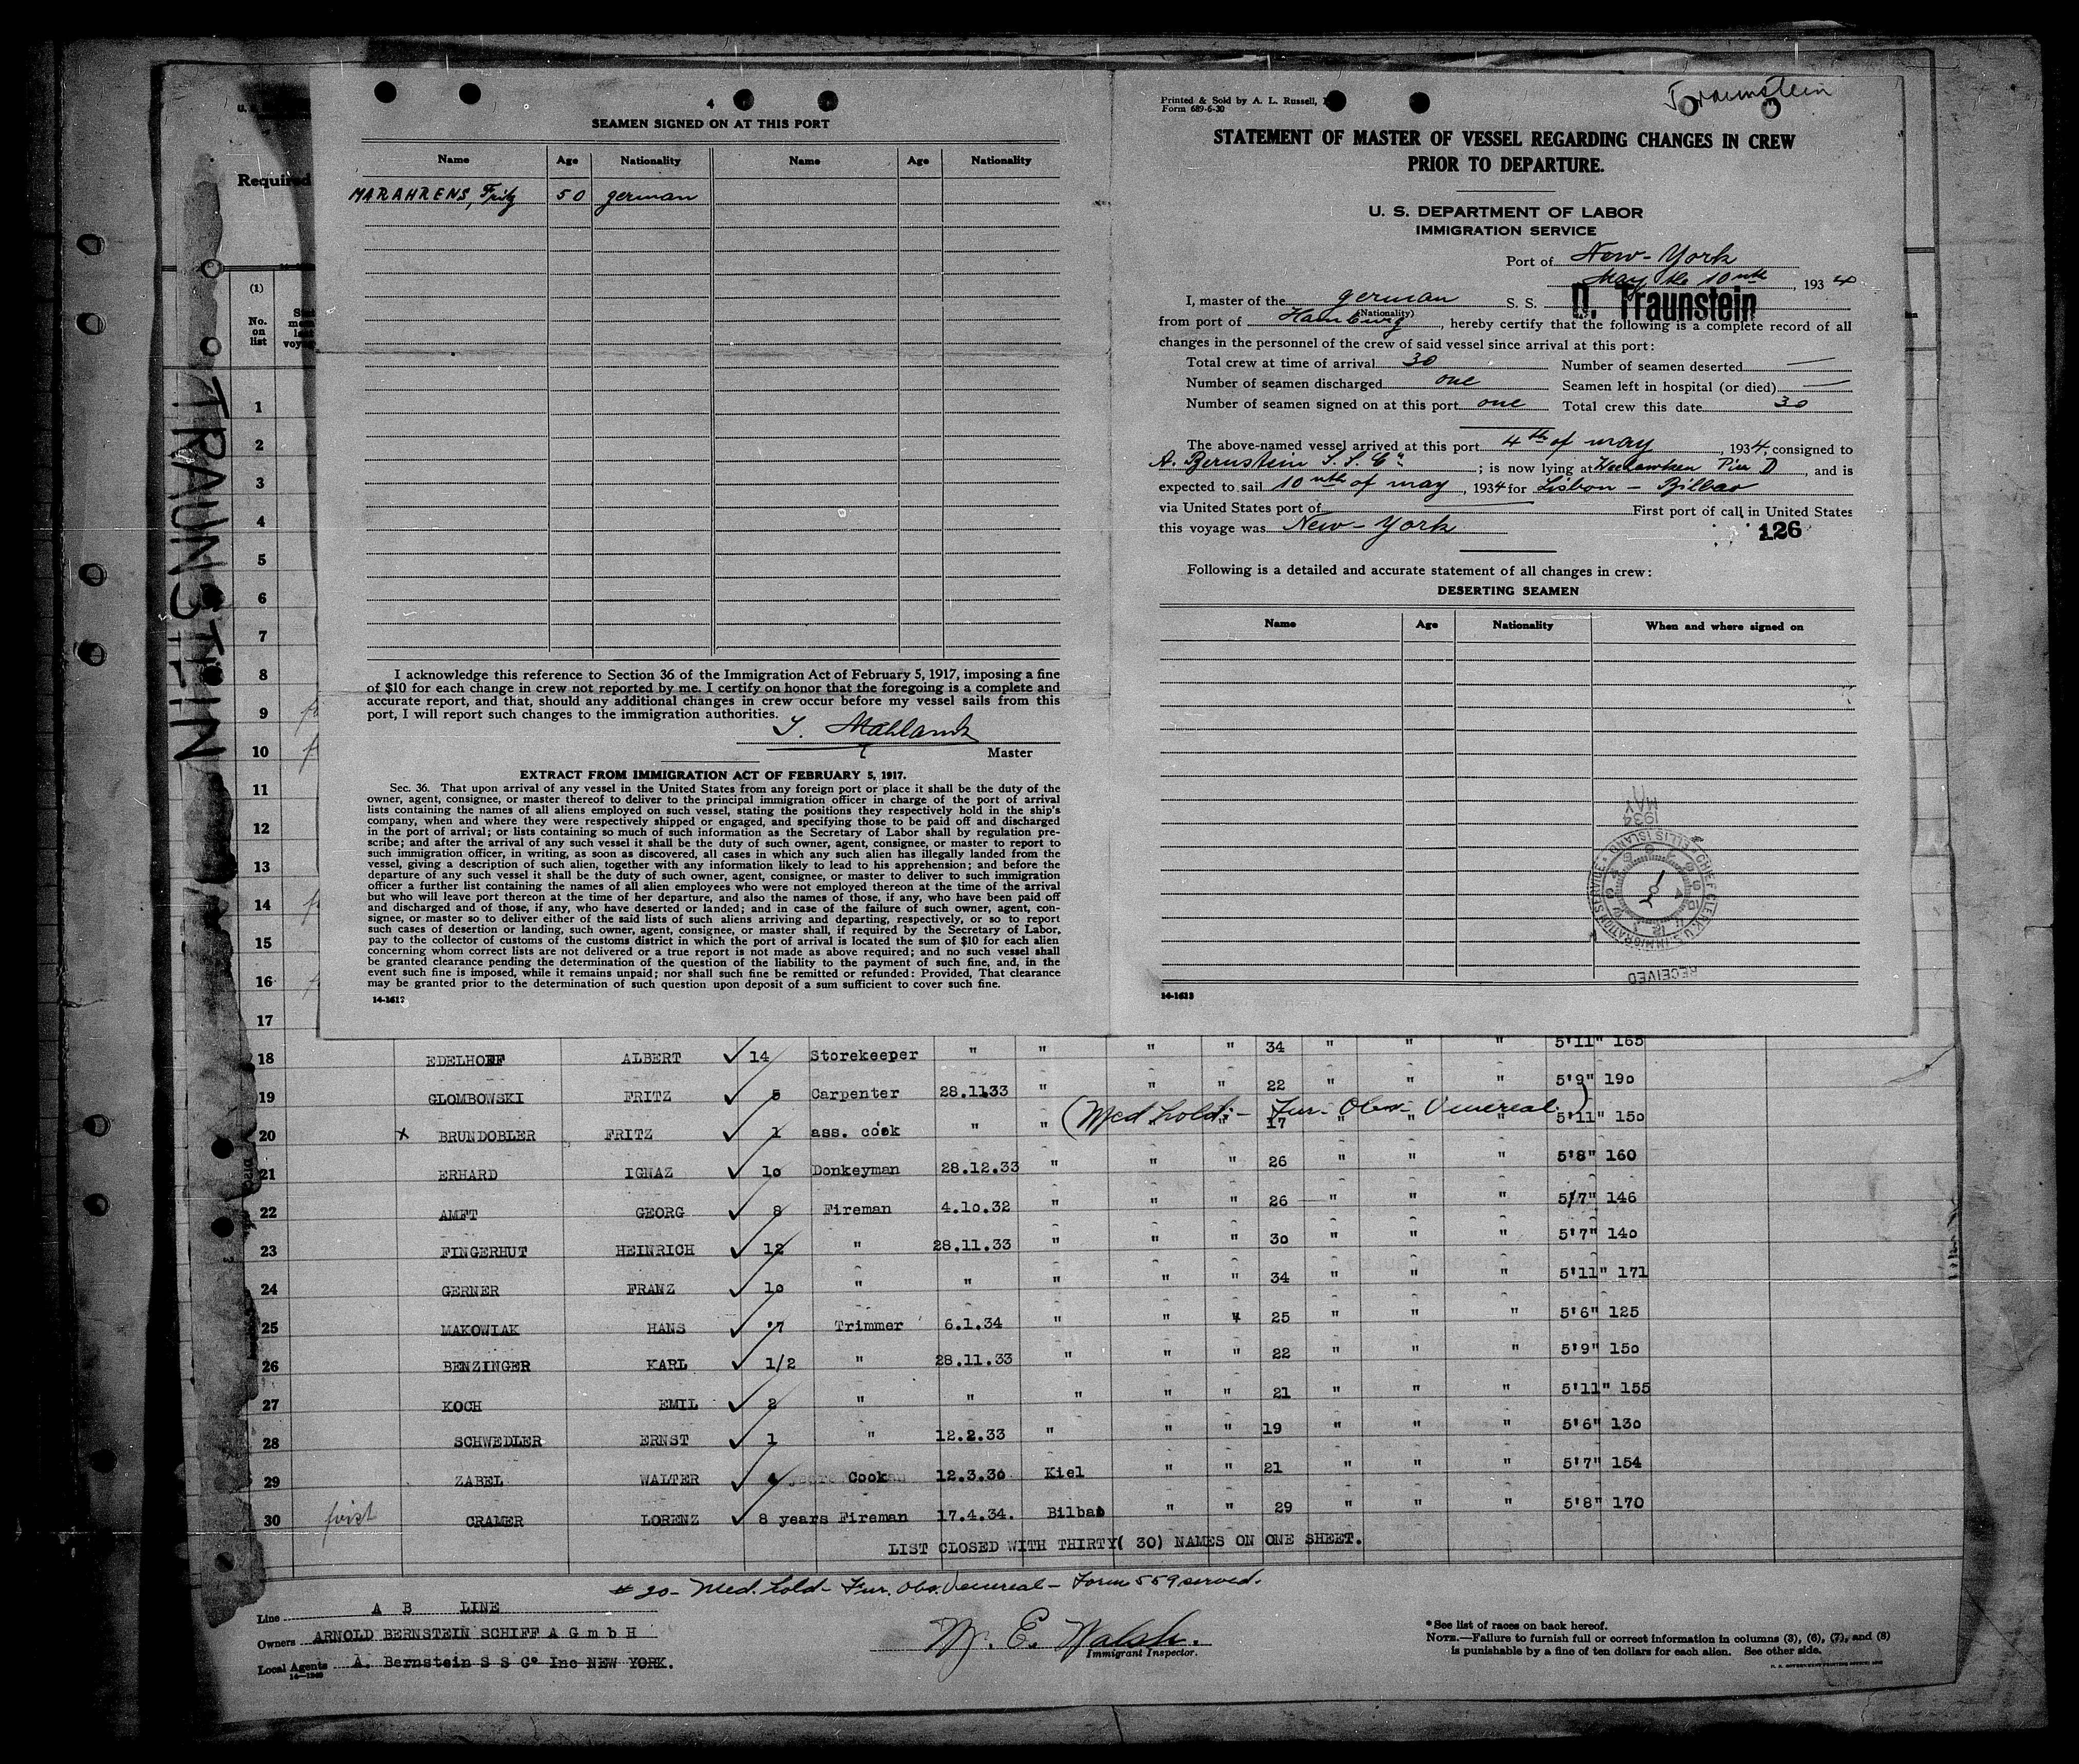 4
SEAMEN SIGNED ON AT THIS PORT
Name Age Nationality Name Age Nationality
MARAHRENS, Fritz 50 german
I acknowledge this reference to Section 36 of the Immigration Act of February 5, 1917, imposing a fine
of $10 for each change in crew not reported by me. I certify on honor that the foregoing is a complete and
accurate report, and that, should any additional changes in crew occur before my vessel sails from this
port, I will report such changes to the immigration authorities.
Master
EXTRACT FROM IMMIGRATION ACT OF FEBRUARY 5, 1917.
Sec. 36. That upon arrival of any vessel in the United States from any foreign port or place it shall be the duty of the
owner, agent, consignee, or master thereof to deliver to the principal immigration officer in charge of the port of arrival
lists containing the names of all aliens employed on such vessel, stating the positions they respectively hold in the ship's
company, when and where they were respectively shipped or engaged, and specifying those to be paid off and discharged
in the port of arrival; or lists containing so much of such information as the Secretary of Labor shall by regulation pre-
scribe; and after the arrival of any such vessel it shall be the duty of such owner, agent, consignee, or master to report to
such immigration officer, in writing, as soon as discovered, all cases in which any such alien has illegally landed from the
vessel, giving a description of such alien, together with any information likely to lead to his apprehension; and before the
departure of any such vessel it shall be the duty of such owner, agent, consignee, or master to deliver to such immigration
officer a further list containing the names of all alien employees who were not employed thereon at the time of the arrival
but who will leave port thereon at the time of her departure, and also the names of those, if any, who have been paid off
and discharged and of those, if any, who have deserted or landed; and in case of the failure of such owner, agent, con-
signee, or master so to deliver either of the said lists of such aliens arriving and departing, respectively, or so to report
such cases of desertion or landing, such owner, agent, consignee, or master shall, if required by the Secretary of Labor,
pay to the collector of customs of the customs district in which the port of arrival is located the sum of $10 for each alien
concerning whom correct lists are not delivered or a true report is not made as above required; and no such vessel shall
be granted clearance pending the determination of the question of the liability to the payment of such fine, and, in the
event such fine is imposed, while it remains unpaid; nor shall such fine be remitted or refunded: Provided, That clearance
may be granted prior to the determination of such question upon deposit of a sum sufficient to cover such fine.
14-1613
Traunstein
Printed & Sold by A. L. Russell,
Form 689-6-30
STATEMENT OF MASTER OF VESSEL REGARDING CHANGES IN CREW
PRIOR TO DEPARTURE.
U. S. DEPARTMENT OF LABOR
IMMIGRATION SERVICE
Port of New-York
May the 10nth, 1934
I, master of the german S. S. D. Traunstein
(Nationality)
from port of Hamburg, hereby certify that the following is a complete record of all
changes in the personnel of the crew of said vessel since arrival at this port:
Total crew at time of arrival 30 Number of seamen deserted —
Number of seamen discharged one Seamen left in hospital (or died) —
Number of seamen signed on at this port one Total crew this date 30
The above-named vessel arrived at this port 4th of may, 1934, consigned to
A. Bernstein S. S. Co; is now lying at Weehawken Pier D, and is
expected to sail 10nth of may, 1934 for Lisbon - Bilbao
via United States port of First port of call in United States
this voyage was New-York
126
Following is a detailed and accurate statement of all changes in crew:
DESERTING SEAMEN
Name Age Nationality When and where signed on
MAY
1934
CHIEF CLERK U.S. IMMIGRATION SERVICE ELLIS ISLAND
RECEIVED
14-1613
TRAUNSTEIN
Required
(1)
No.
on
list
1
2
3
4
5
6
7
8
9
10
11
12
13
14
15
16
17
18 EDELHOFF ALBERT 14 Storekeeper " " " " 34 " " " 5'11" 165
19 GLOMBOWSKI FRITZ 5 Carpenter 28.11.33 " " " 22 " " " 5'9" 190
(Med hold:- Fur. Obs- Venereal.)
20 x BRUNDOBLER FRITZ 1 ass. cook " " " " 17 " " " 5'11" 150
21 ERHARD IGNAZ 10 Donkeyman 28.12.33 " " " 26 " " " 5'8" 160
22 AMFT GEORG 8 Fireman 4.10.32 " " " 26 " " " 5'7" 146
23 FINGERHUT HEINRICH 12 " 28.11.33 " " " 30 " " " 5'7" 140
24 GERNER FRANZ 10 " " " " " 34 " " " 5'11" 171
25 MAKOWIAK HANS 7 Trimmer 6.1.34 " " " 25 " " " 5'6" 125
26 BENZINGER KARL 1/2 " 28.11.33 " " " 22 " " " 5'9" 150
27 KOCH EMIL 2 " " " " " 21 " " " 5'11" 155
28 SCHWEDLER ERNST 1 " 12.2.33 " " " 19 " " " 5'6" 130
29 ZABEL WALTER 4 Cook 12.3.30 Kiel " " 21 " " " 5'7" 154
30 first CRAMER LORENZ 8 years Fireman 17.4.34. Bilbao " " 29 " " " 5'8" 170
LIST CLOSED WITH THIRTY( 30) NAMES ON ONE SHEET.
# 20 - Med. hold - Fur. Obs. Venereal - Form 559 served.
Line A B LINE
Owners ARNOLD BERNSTEIN SCHIFF A G m b H
Local Agents A. Bernstein S S Co Inc NEW YORK.
W. E. Walsh.
Immigrant Inspector.
*See list of races on back hereof.
NOTE.—Failure to furnish full or correct information in columns (3), (6), (7), and (8)
is punishable by a fine of ten dollars for each alien. See other side.